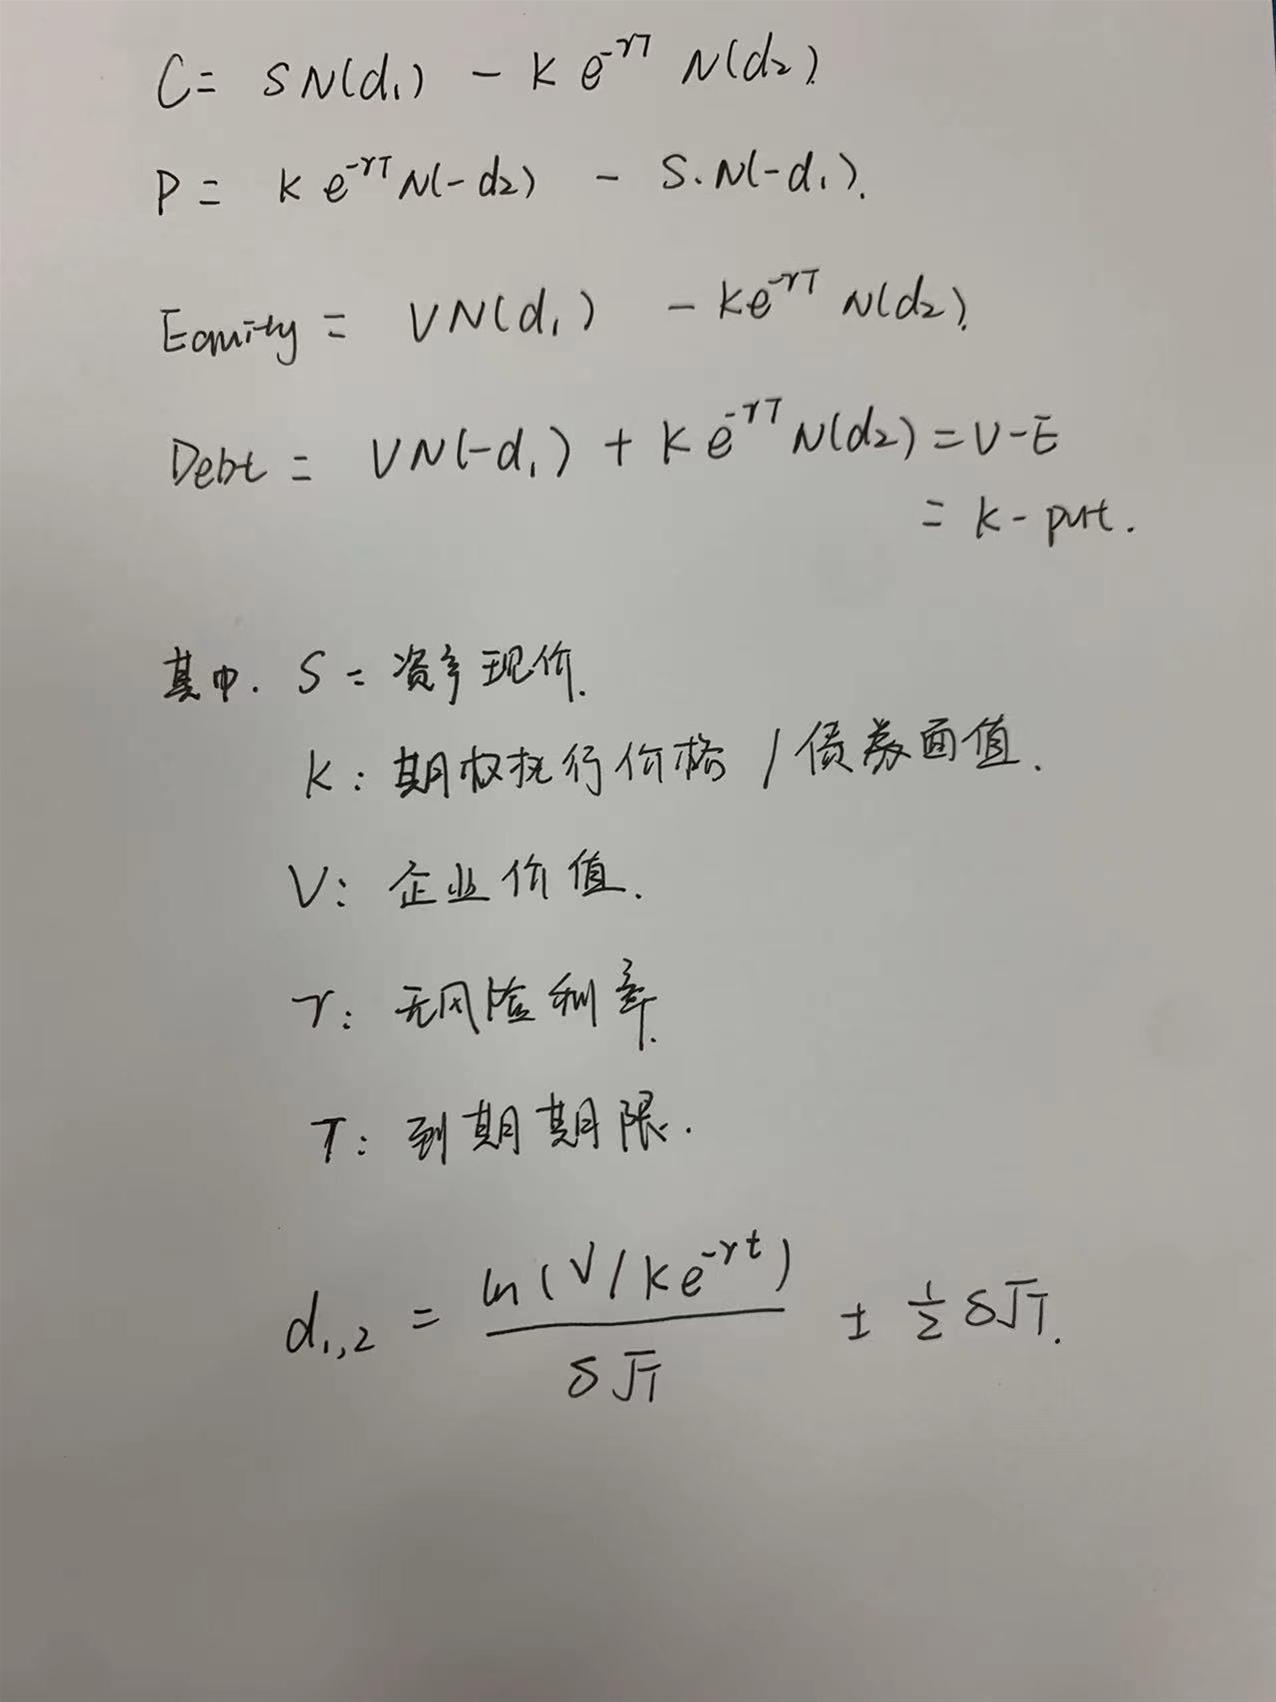 C = SN(d₁) - K e^{-rT} N(d₂).
P = K e^{-rT} N(-d₂) - S·N(-d₁).
Equity = VN(d₁) - Ke^{-rT} N(d₂).
Debt = VN(-d₁) + K e^{-rT} N(d₂) = V-E
= K - put.
其中. S = 资产现价.
K: 期权执行价格 / 债券面值.
V: 企业价值.
r: 无风险利率.
T: 到期期限.
d₁,₂ = \frac{ln(V/Ke^{-rt})}{δ√T} ± \frac{1}{2} δ√T.